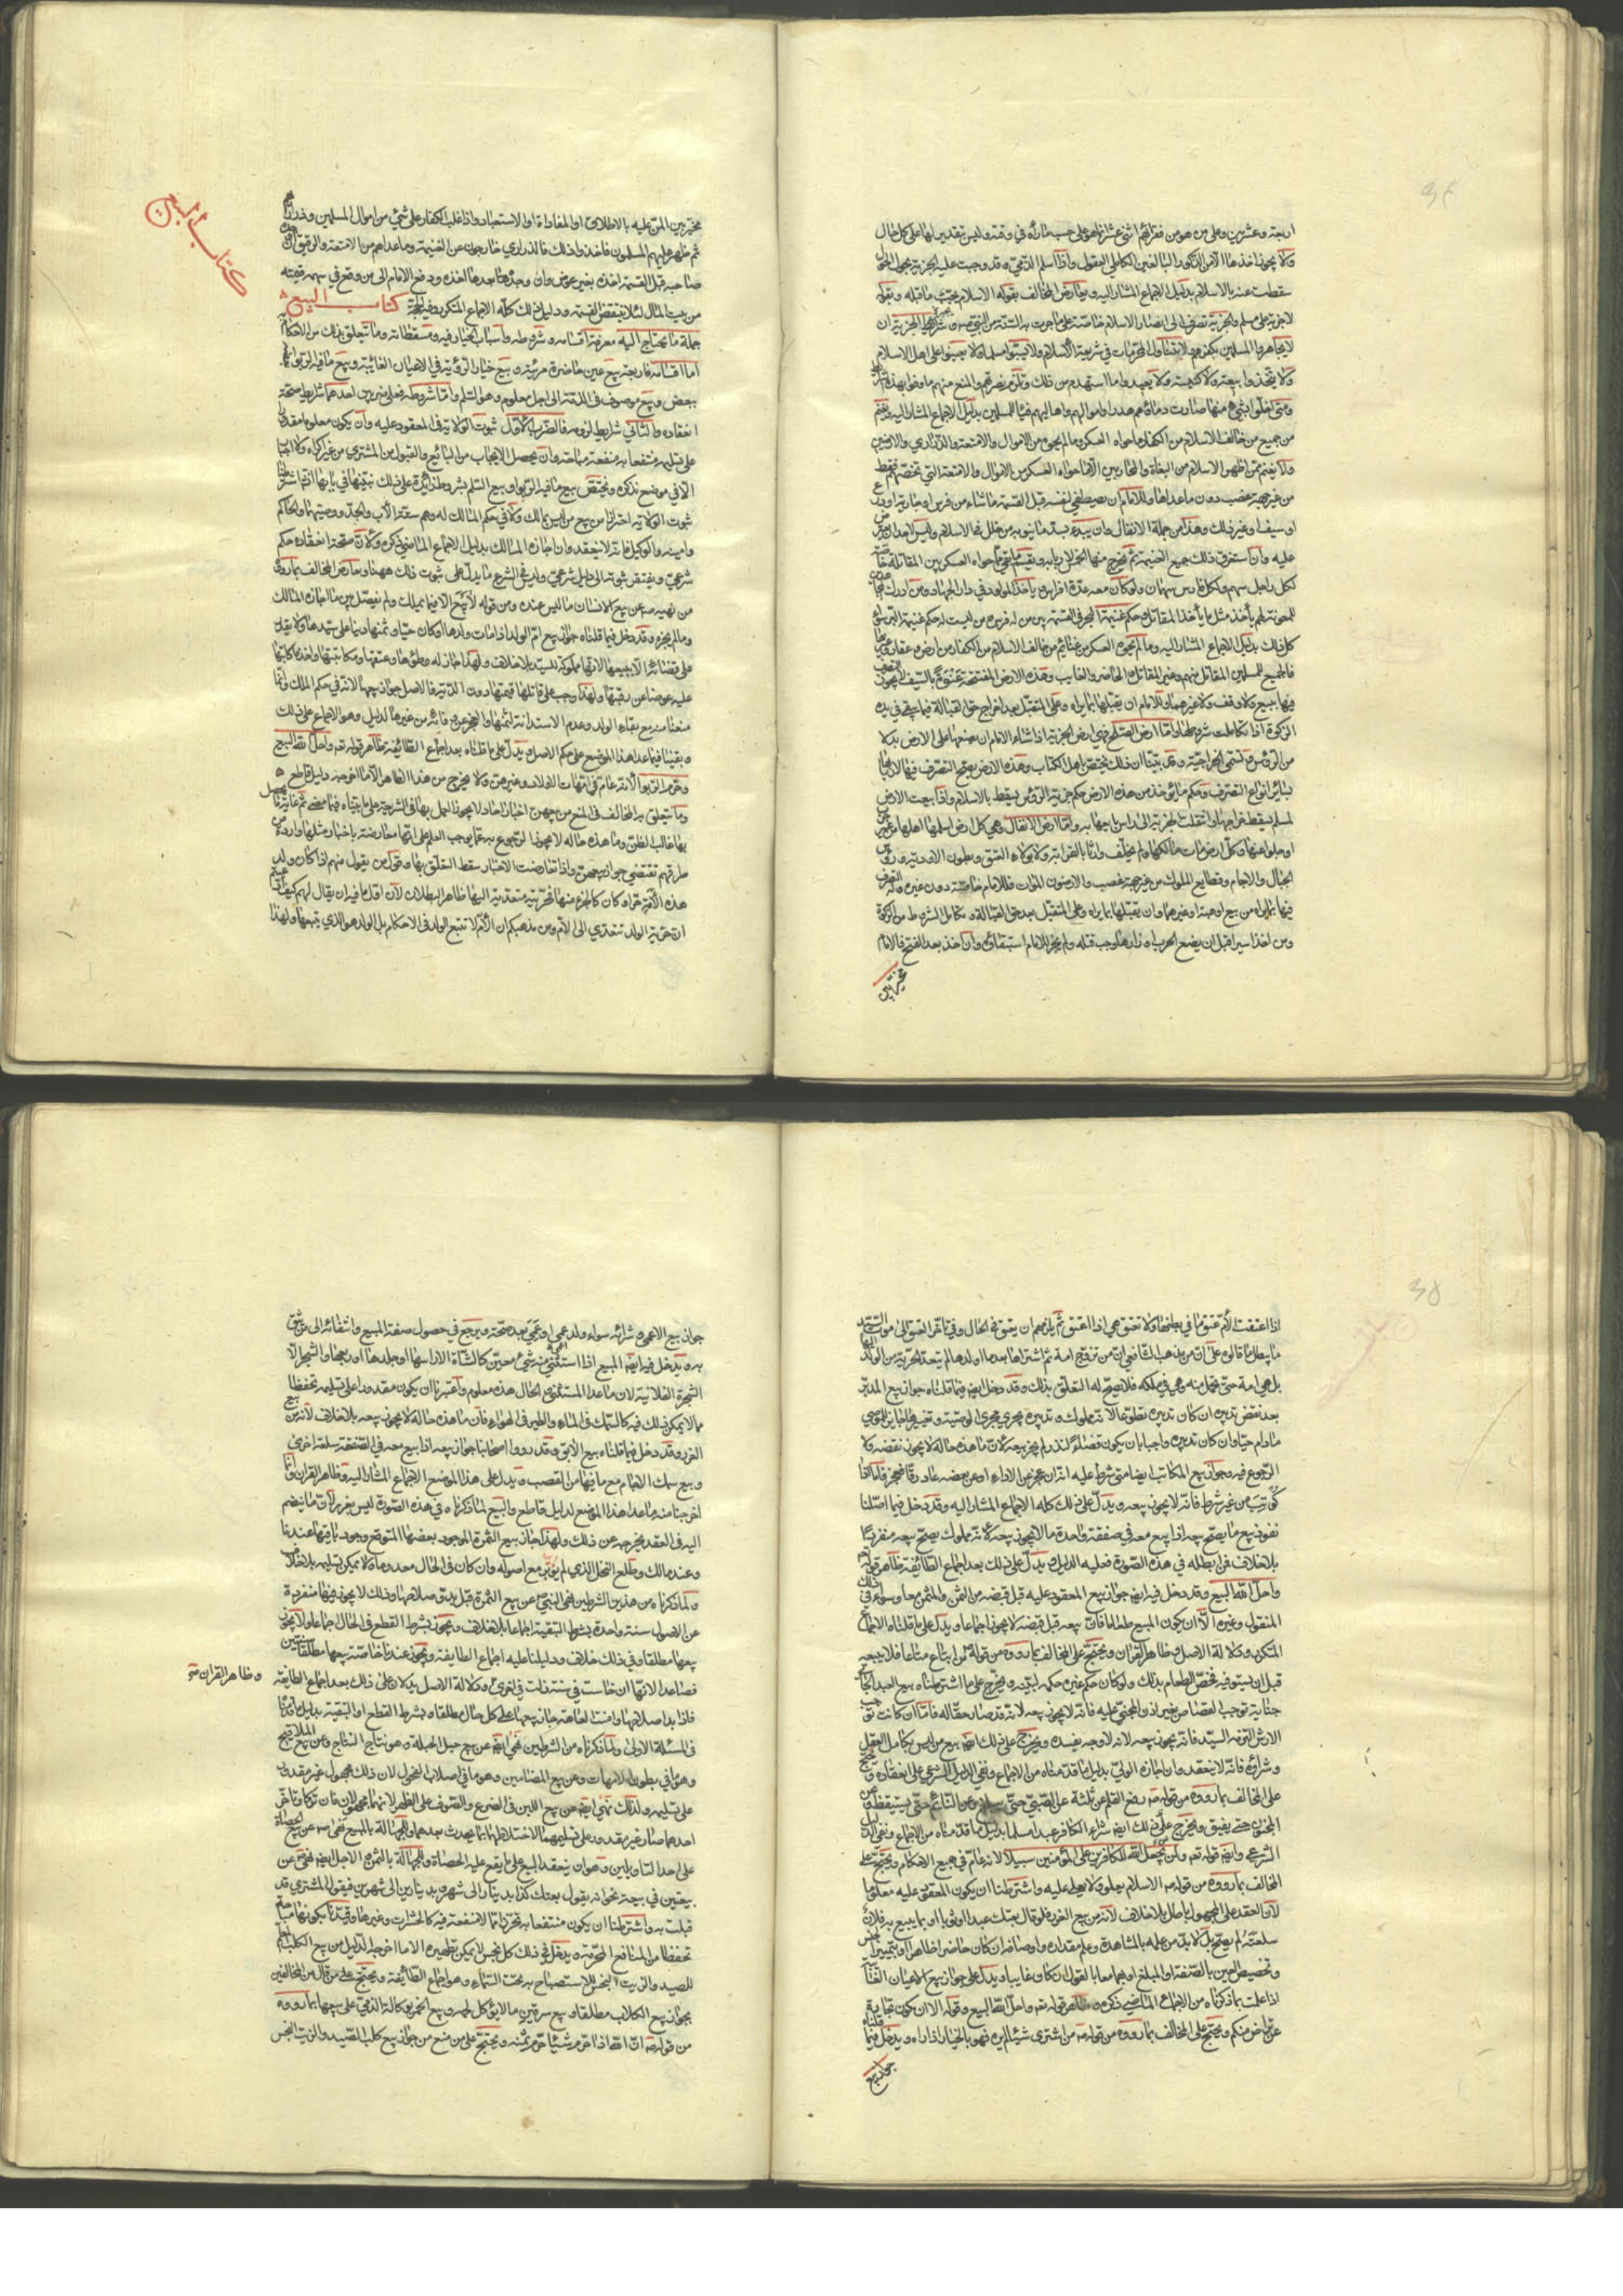 اربعة وعشرين وعلى من هو من فقرائهم اثنى عشر درهما على حسب ما رآه في وقته وليس تقديرا لها على كل حال
ولا يجوز اخذها الا من الذكور البالغين الكاملي العقول واذا اسلم الذمي وقد وجبت عليه الجزية بحول الحول
سقطت عنه بالاسلام بدليل الاجماع المشار اليه ويعارض المخالف بقوله الاسلام يجب ما قبله وبقوله
لا جزية على مسلم والجزية تصرف الى انصار الاسلام خاصة على ما جرت به السنة من النبي ص وشرايط الجزية ان
لا يجاهروا المسلمين بكفرهم ولا بتناول المحرمات في شريعة الاسلام ولا يسبوا مسلما ولا يعينوا على اهل الاسلام
ولا يتخذوا بيعة ولا كنيسة ولا يعيدوا ما استهدم من ذلك ويلزم نصرتهم والمنع منهم ما وفوا بهذه
ومتى اخلوا بشيء منها صارت دماؤهم هدرا واموالهم واهاليهم فيئا للمسلمين بدليل الاجماع المشار اليه ويغنم
من جميع من خالف الاسلام من الكفار ما حواه العسكر وما لم يحوه من الاموال والامتعة والذراري والارضين
ولا يغنم ممن اظهر الاسلام من البغاة والمحاربين الا ما حواه العسكر من الاموال والامتعة التي تخصهم فقط
من غير جهة غصب دون ما عداها وللامام ان يصطفي لنفسه قبل القسمة ما شاء من فرس او جارية او درع
او سيف او غير ذلك وهذا من جملة الانفال وان يبدء بسد ما ينوبه من خلل في الاسلام وليس لاحد ان يعترض
عليه وان استغرق ذلك جميع الغنيمة ثم يخرج منها الخمس لاربابه ويقسم ما بقي مما حواه العسكر بين المقاتلة خاصة
لكل راجل سهم ولكل فارس سهمان ولو كان معه عدة افراس ويأخذ المولود في دار الجهاد ومن ادرك
للمعونة لهم يأخذ مثل ما يأخذ المقاتل وحكم غنيمة البحر في القسمة بين من له فرس ومن ليست له حكم غنيمة البر سواء
كل ذلك بدليل الاجماع المشار اليه وما لم يحوه العسكر من غنائم من خالف الاسلام من الكفار من ارض وعقار
فالجميع للمسلمين المقاتل منهم وغير المقاتل الحاضر والغايب وهذه الارض المفتتحة عنوة بالسيف لا يجوز التصرف
فيها ببيع ولا وقف ولا غيرهما وللامام ان يقبلها بما يراه وعلى المتقبل بعد اخراج حق القبالة فيما يبقى في يده
الزكوة اذا تكاملت شروطها واما ارض الصلح فهي ارض الجزية اذا شاء الامام ان يضعها على الارض بدلا
من الرؤس وتسمى الخراجية وقد بينا ان ذلك يختص باهل الكتاب وهذه الارض يصح التصرف فيها لاربابها
بسائر انواع التصرف وحكم ما يؤخذ من هذه الارض حكم جزية الرؤس يسقط بالاسلام واذا بيعت الارض
لمسلم سقط خراجها وانتقلت الجزية الى راس بايعها به واما ارض الانفال وهي كل ارض اسلمها اهلها من غير حرب
او جلوا عنها وكل ارض مات مالكها ولم يخلف وارثا بالقرابة ولا بولاء العتق وبطون الاودية ورؤس
الجبال والاجام وقطايع الملوك من غير جهة غصب والارضون الموات فللامام خاصة دون غيره وله التصرف
فيها بما يراه من بيع او هبة او غيرهما وان يقبلها بما يراه وعلى المتقبل بعد حق القبالة وتكامل الشروط من الزكوة
ومن اخذ اسيرا قبل ان يضع الحرب اوزارها وجب قتله ولم يجز للامام استبقاؤه وان اخذ بعد الفتح فالامام
مخير بين
مخير بين المن عليه بالاطلاق او المفاداة او الاستعباد واذا غلب الكفار على شيء من اموال المسلمين وذراريهم
ثم ظهر عليهم المسلمون فاخذوا ذلك فالذراري خارجون عن الغنيمة وما عداهم من الامتعة والرقيق ان وجده
صاحبه قبل القسمة اخذه بغير عوض وان وجده بعدها اخذه ودفع الامام الى من وقع في سهمه قيمته
من بيت المال لئلا ينتقض القسمة ودليل ذلك كله الاجماع المتكرر وفيه الحجة كتاب البيع
جملة ما يحتاج اليه معرفة اقسامه وشروطه واسباب الخيار فيه ومسقطاته وما يتعلق بذلك من الاحكام
اما اقسامه فاربعة بيع عين حاضرة مرئية وبيع خيار الرؤية في الاعيان الغائبة وبيع ما فيه الربوا بعضه
ببعض وبيع موصوف في الذمة الى اجل معلوم وهو السلم واما شروطه فعلى ضربين احدهما شرايط صحة
انعقاده والثاني شرايط لزومه فالضرب الاول ثبوت الولاية في المعقود عليه وان يكون معلوما مقدورا
على تسليمه منتفعا به منفعة مباحة وان يحصل الايجاب من البائع والقبول من المشتري من غير اكراه ولا اجبار
الا في موضع نذكره ويختص بيع ما فيه الربوا وبيع السلم بشروط زائدة على ذلك نبينها في بابها انشاء الله اشترطنا
ثبوت الولاية احترازا من بيع من ليس بمالك ولا في حكم المالك له وهم ستة الاب والجد ووصيهما والحاكم
وامينه والوكيل فانه لا ينعقد وان اجازه المالك بدليل الاجماع الماضي ذكره ولان صحة انعقاده حكم
شرعي ويفتقر ثبوته الى دليل شرعي وليس في الشرع ما يدل على ثبوت ذلك ههنا ويعارض المخالف بما رووه
من نهيه ص عن بيع الانسان ما ليس عنده ومن قوله لا بيع الا فيما يملك ولم يفصل بين ما اجازه المالك
وما لم يجزه وقد دخل فيما قلناه جواز بيع ام الولد اذا مات ولدها او كان حيا وثمنها دينا على سيدها ولا يقدر
على قضائه الا ببيعها لانها مملوكة للسيد بلا خلاف ولهذا جاز له وطؤها وعتقها ومكاتبتها واخذ ما كاتبها
عليه عوضا عن رقبتها ولهذا وجب على قاتلها قيمتها دون الدية فالاصل جواز بيعها لانه في حكم الملك وانما
منعنا منه مع بقاء الولد وعدم الاستدانة لثمنها والعجز عن وفائه من غيرها لدليل وهو الاجماع على ذلك
وبقينا فيما عدا هذا الموضع على حكم الاصل ويدل على ما قلناه بعد اجماع الطائفة ظاهر قوله تعه واحل الله البيع
وحرم الربوا لانه عام في امهات الاولاد وغيرهن ولا يخرج من هذا الظاهر الا ما اخرجه دليل قاطع
وما يتعلق به المخالف في المنع من بيعهن اخبار احاد لا يجوز العمل بها في الشريعة على ما بيناه فيما مضى ثم غاية ما يحصل
بها غالب الظن وما هذه حاله لا يجوز الرجوع به عما يوجب العلم على انها معارضة باخبار مثلها واردة من
طرقهم تقتضي جواز بيعهن واذا تعارضت الاخبار سقط التعلق بها وقول من يقول منهم اذا كان ولد
هذه الامة حرا وكان كالجزء منها فحريته متعدية اليها ظاهر البطلان لان اقل ما فيه ان يقال لهم كيف
ان حرية الولد تتعدى الى الام ومن مذهبكم ان الام لا تتبع الولد في الاحكام بل الولد هو الذي يتبعها ولهذا
كتاب البيع
اذا اعتقت الام عتق ما في بطنها ولا تعتق هي اذا اعتق ثم يلزمهم ان يعتق في الحال وفي تأخر العتق الى موت السيد
ما يبطل ما قالوه على ان من مذهب الشافعي ان من تزوج امة ثم اشتراها بعد ما اولدها لم يتعد الحرية من الولد اليها
بل هي امة حتى تحمل منه وهي في ملكه فلا يصح له التعلق بذلك وقد دخل ايضه فيما قلناه جواز بيع المدبر
بعد نقض تدبيره ان كان تدبيره تطوعا لانه مملوك وتدبيره يجري مجرى الوصية وتغييرها جايز للموصي
ما دام حيا وان كان تدبيره واجبا بان يكون قضاء لنذر لم يجز بيعه لان ما هذه حاله لا يجوز نقضه ولا
الرجوع فيه وجواز بيع المكاتب ايضا متى شرط عليه انه ان عجز عن الاداء او عن بعضه عاد رقا فعجز فاما اذا
كوتب من غير شرط فانه لا يجوز بيعه ويدل على ذلك كله الاجماع المشار اليه وقد دخل فيما اصلنا
نفوذ بيع ما يصح بيعه اذا بيع معه في صفقة واحدة ما لا يجوز بيعه لانه مملوك يصح بيعه منفردا
بلا خلاف فمن ابطله في هذه الصورة فعليه الدليل ويدل على ذلك بعد اجماع الطائفة ظاهر قوله تعه
واحل الله البيع وقد دخل فيه ايضه جواز بيع المعقود عليه قبل قبضه من الثمن والمثمن معا وسواء في ذلك
المنقول وغيره الا ان يكون المبيع طعاما فان بيعه قبل قبضه لا يجوز اجماعا ويدل على ما قلناه الاجماع
المتكرر ودلالة الاصل وظاهر القران ويحتج على المخالف بما رووه من قوله من ابتاع متاعا فلا يبيعه
قبل ان يستوفيه فخص الطعام بذلك ولو كان حكم غيره حكمه لبينه ويخرج على ما اشترطناه بيع العبد الجاني
جناية توجب القصاص بغير اذن المجني عليه فانه لا يجوز بيعه لانه قد صار حقا له فاما ان كانت توجب
الارش التزمه السيد فانه يجوز بيعه لانه لا وجه يفسده ويخرج على ذلك ايضه بيع من ليس بكامل العقل
وشراؤه فانه لا ينعقد وان اجازه الولي بدليل ما قدمناه من الاجماع ونفي الدليل الشرعي على انعقاده ويحتج
على المخالف بما رووه من قوله ص رفع القلم عن ثلثة عن الصبي حتى يبلغ وعن النائم حتى يستيقظ وعن
المجنون حتى يفيق ويخرج على ذلك ايضه شراء الكافر عبدا مسلما بدليل ما قدمناه من الاجماع ونفي الدليل
الشرعي وايضه قوله تعه ولن يجعل الله للكافرين على المؤمنين سبيلا لانه عام في جميع الاحكام ويحتج على
المخالف بما رووه من قوله ص الاسلام يعلو ولا يعلى عليه واشترطنا ان يكون المعقود عليه معلوما
لان العقد على المجهول باطل بلا خلاف لانه من بيع الغرر فلو قال بعتك عبدا او ثوبا او بما يبيع به فلان
سلعته لم يصح بل لا بد من علمه بالمشاهدة وعلم مقداره واوصافه ان كان حاضرا ظاهرا او بتمييز الجنس
وتخصيص العين بالصفة او المبلغ او بهما معا بالقول ان كان غايبا ويدل على جواز بيع الاعيان الغائبة
اذا علمت بما ذكرناه من الاجماع الماضي ذكره وظاهر قوله تعه واحل الله البيع وقوله الا ان تكون تجارة
عن تراض منكم ويحتج على المخالف بما رووه من قوله ص من اشترى شيئا لم يره فهو بالخيار اذا راه ويدخل فيما قلناه
جواز بيع
جواز بيع الاعمى وشرائه سواء ولد اعمى او عمي بعد صحته ويرجع في حصول صفة المبيع وانتفائه الى من يثق
به ويدخل فيه ايضه المبيع اذا استثني منه شيء معين كالشاة الا راسها او جلدها او ربعها والشجر الا
الشجرة الفلانية لان ما عدا المستثنى والحال هذه معلوم واعتبرنا ان يكون مقدورا على تسليمه تحفظا
مما لا يمكن ذلك فيه كالسمك في الماء والطير في الهواء فان ما هذه حاله لا يجوز بيعه بلا خلاف لانه من بيع
الغرر وقد دخل فيما قلناه بيع الابق وقد رووا اصحابنا جواز بيعه اذا بيع معه في الصفقة سلعة اخرى
وبيع سمك الاجام مع ما فيها من القصب ويدل على هذا الموضع الاجماع المشار اليه وظاهر القران وانما
اخرجنا منه ما عدا هذا الموضع لدليل قاطع والبيع لما ذكرناه في هذه الصورة ليس بغرر لان ما ينضم
اليه في العقد يخرجه عن ذلك ولهذا جاز بيع الثمرة الموجود بعضها المتوقع وجود باقيها عندنا
وعند مالك وطلع النخل الذي لم يؤبر مع اصوله وان كان في الحال معدوما ولا يمكن تسليمه بلا خلاف
ولما ذكرناه من هذين الشرطين نهى النبي ص عن بيع الثمرة قبل بدو صلاحها وذلك لا يجوز فيها منفردة
عن الاصول سنة واحدة بشرط التبقية اجماعا بلا خلاف ويجوز بشرط القطع في الحال اجماعا ولا يجوز
بيعها مطلقا وفي ذلك خلاف ودليلنا عليه اجماع الطايفة ويجوز عندنا خاصة بيعها مطلقا سنتين
فصاعدا لانها ان خاست في سنة زكت في اخرى ودلالة الاصل يدلان على ذلك بعد اجماع الطايفة
وظاهر القران صح
فاذا بدا صلاحها وامنت العاهة جاز بيعها على كل حال مطلقا وبشرط القطع او التبقية بدليل ما قدمناه
في المسئلة الاولى ولما ذكرناه من الشرطين نهي ايضه عن بيع حبل الحبلة وهو نتاج النتاج وعن بيع الملاقيح
وهو ما في بطون الامهات وعن بيع المضامين وهو ما في اصلاب الفحول لان ذلك مجهول غير مقدور
على تسليمه ولذلك نهي ايضه عن بيع اللبن في الضرع والصوف على الظهر لانهما مجهولان فان تركا وتأخر
احدهما صار غير مقدور على تسليمهما لاختلاطهما بما يحدث بعدهما وللجهالة بالمبيع نهى ص عن بيع الحصاة
على احد التاويلين وهو ان ينعقد البيع على ما يقع عليه الحصاة وللجهالة بالثمن او الاجل ايضه نهى ص عن
بيعتين في بيعة نحو ان يقول بعتك كذا بدينار الى شهر وبدينارين الى شهرين فيقول المشتري قد
قبلت به واشترطنا ان يكون منتفعا به تحرزا مما لا منفعة فيه كالحشرات وغيرها وقيدنا بكونها مباحة
تحفظا من المنافع المحرمة ويدخل في ذلك كل نجس لا يمكن تطهيره الا ما اخرجه الدليل من بيع الكلب المعلم
للصيد والزيت النجس للاستصباح به تحت السماء وهو اجماع الطائفة ويحتج على من قال من المخالفين
بجواز بيع الكلاب مطلقا وبيع سرقين ما لا يؤكل لحمه وبيع الخمر بوكالة الذمي على بيعها بما رووه
من قوله ص ان الله اذا حرم شيئا حرم ثمنه ويحتج على من منع من جواز بيع كلب الصيد والزيت النجس